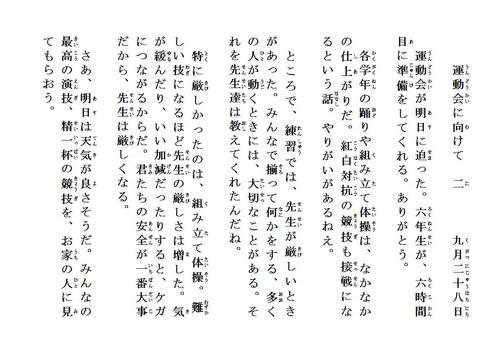 運動会に向けて　二　　九月二十八日
運動会が明日に迫った。六年生が、六時間
目に準備をしてくれる。ありがとう。
各学年の踊りや組み立て体操は、なかなか
の仕上がりだ。紅白対抗の競技も接戦にな
るという話。やりがいがあるねえ。
ところで、練習では、先生が厳しいとき
があった。みんなで揃って何かをする、多く
の人が動くときには、大切なことがある。そ
れを先生達は教えてくれたんだね。
特に厳しかったのは、組み立て体操。難
しい技になるほど先生の厳しさは増した。気
が緩んだり、いい加減だったりすると、ケガ
につながるからだ。君たちの安全が一番大事
だから、先生は厳しくなる。
さあ、明日は天気が良さそうだ。みんなの
最高の演技、精一杯の競技を、お家の人に見
てもらおう。